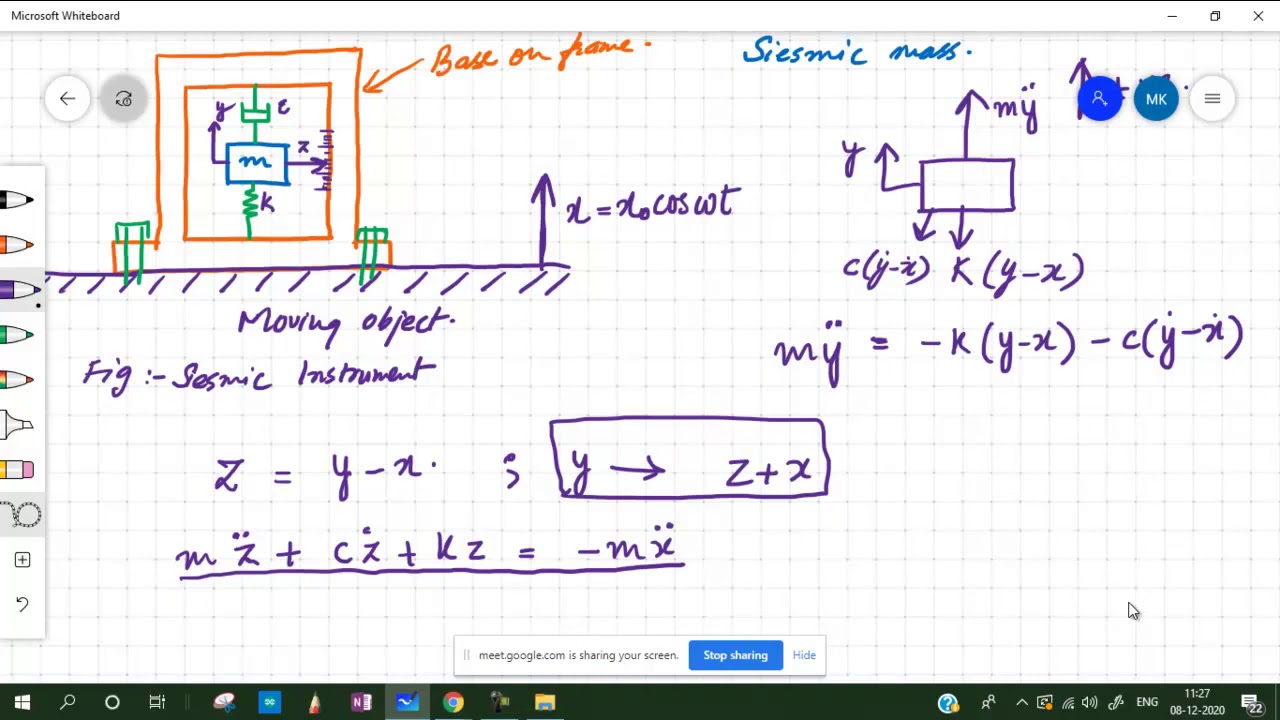 Microsoft Whiteboard
Base on frame.
Siesmic mass.
MK
mÿ
y
c
m
z
k
x = x₀ cos ωt
y
c(ẏ-ẋ) K(y-x)
Moving object.
mÿ = -K(y-x) - c(ẏ-ẋ)
Fig :- Sesmic Instrument
Z = y-x. ; y → z+x
m z̈ + c ż + K z = -m ẍ
meet.google.com is sharing your screen. Stop sharing Hide
ENG
11:27
08-12-2020
22